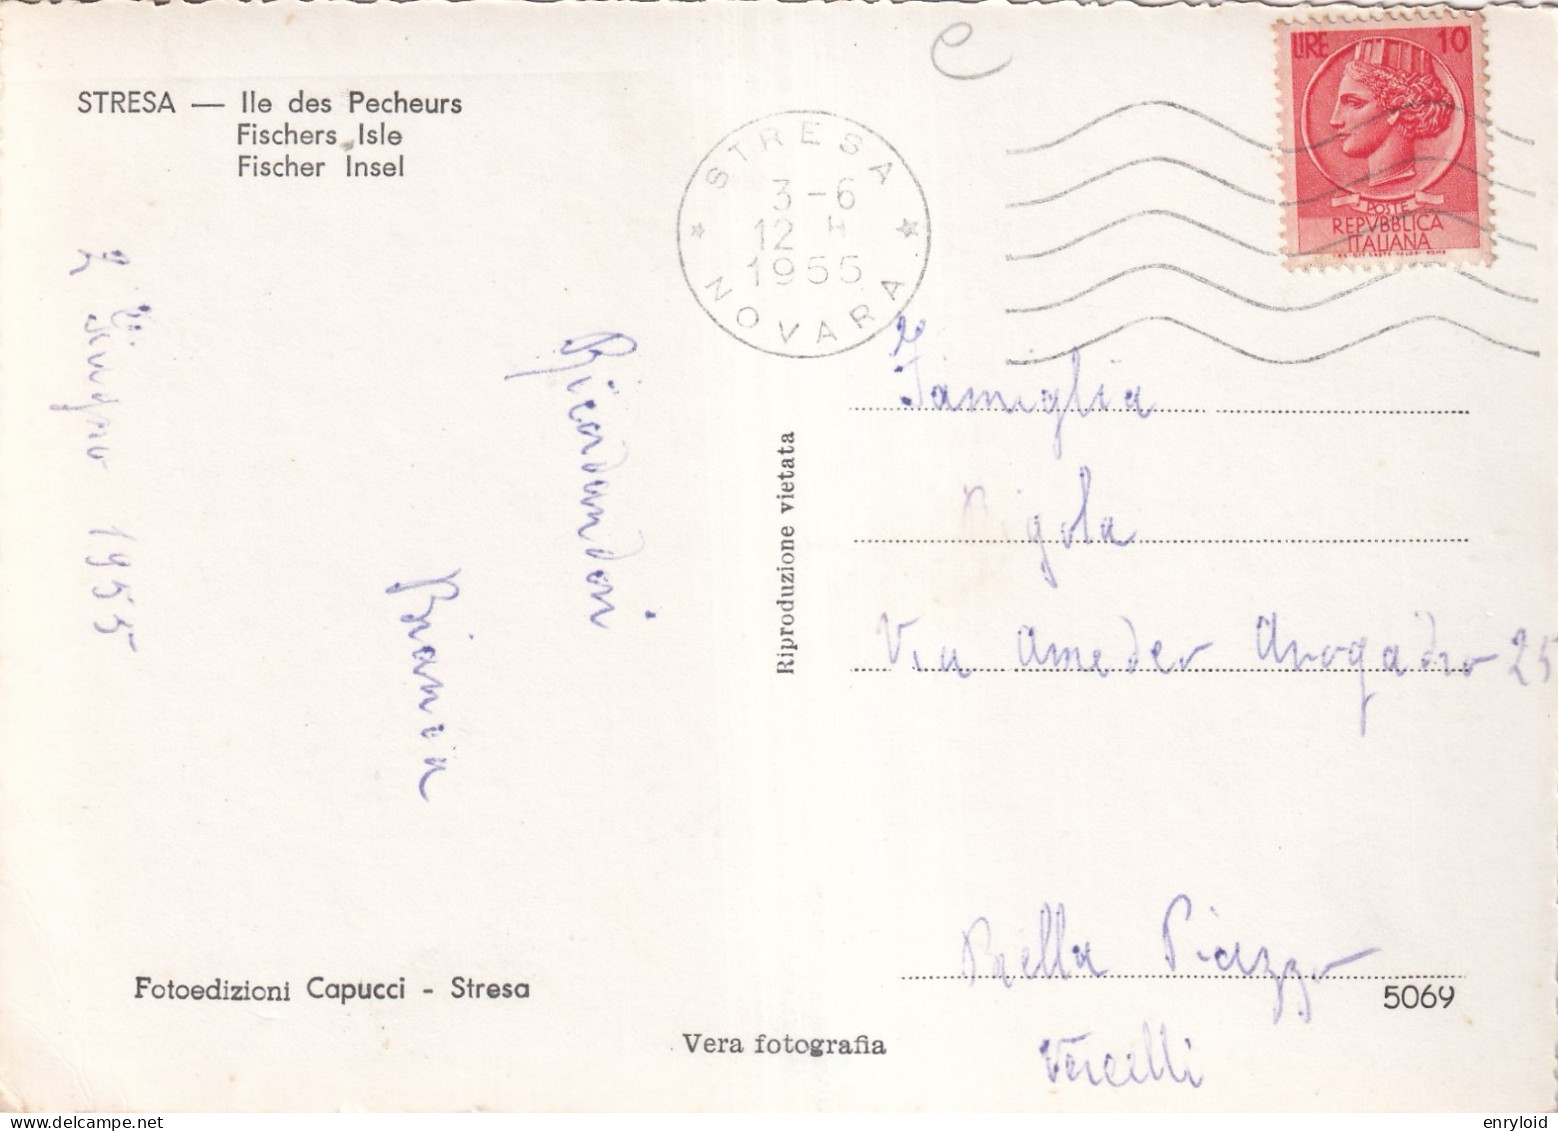 STRESA — Ile des Pecheurs
Fischers Isle
Fischer Insel
2 Giugno 1955
Ricordandoci
Bianca
Fotoedizioni Capucci - Stresa
Riproduzione vietata
Vera fotografia
STRESA
3-6
12 H
1955
NOVARA
LIRE 10
POSTE
REPVBBLICA
ITALIANA
Famiglia
Rigola
Via Amedeo Avogadro 25
Biella Piazzo
Vercelli
5069
enryloid